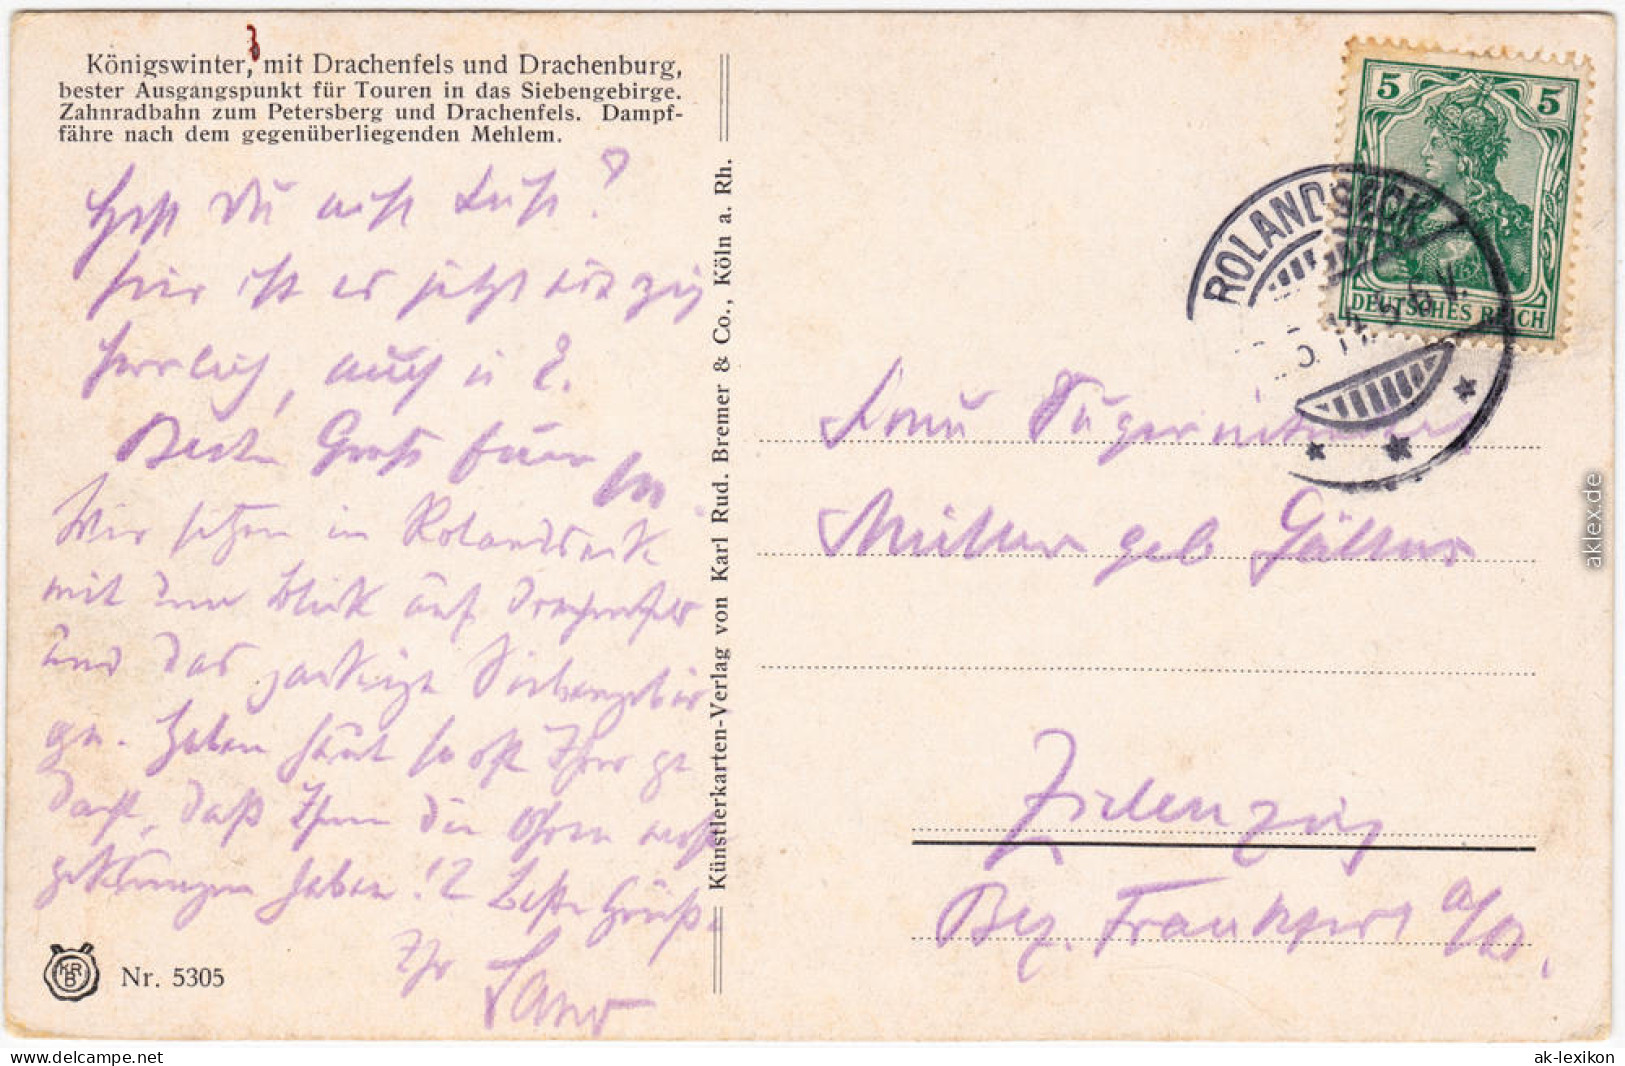 Königswinter, mit Drachenfels und Drachenburg,
bester Ausgangspunkt für Touren in das Siebengebirge.
Zahnradbahn zum Petersberg und Drachenfels. Dampf-
fähre nach dem gegenüberliegenden Mehlem.
Hast Du nicht Lust?
hier ist es jetzt
herrlich, auch
Besten Gruß
Wir sitzen in Rolandseck
mit dem Blick auf Drachenfels
und das Siebengebir
ge. Haben heut so oft Ihrer ge
dacht, daß Ihnen die Ohren
geklungen haben! Beste Grüße
Ihr
Nr. 5305
Künstlerkarten-Verlag von Karl Rud. Bremer & Co., Köln a. Rh.
5 5
DEUTSCHES REICH
ROLANDSECK
Frau
Müller geb
Zielenzig
Bez. Frankfurt a/O.
aklex.de
www.delcampe.net
ak-lexikon